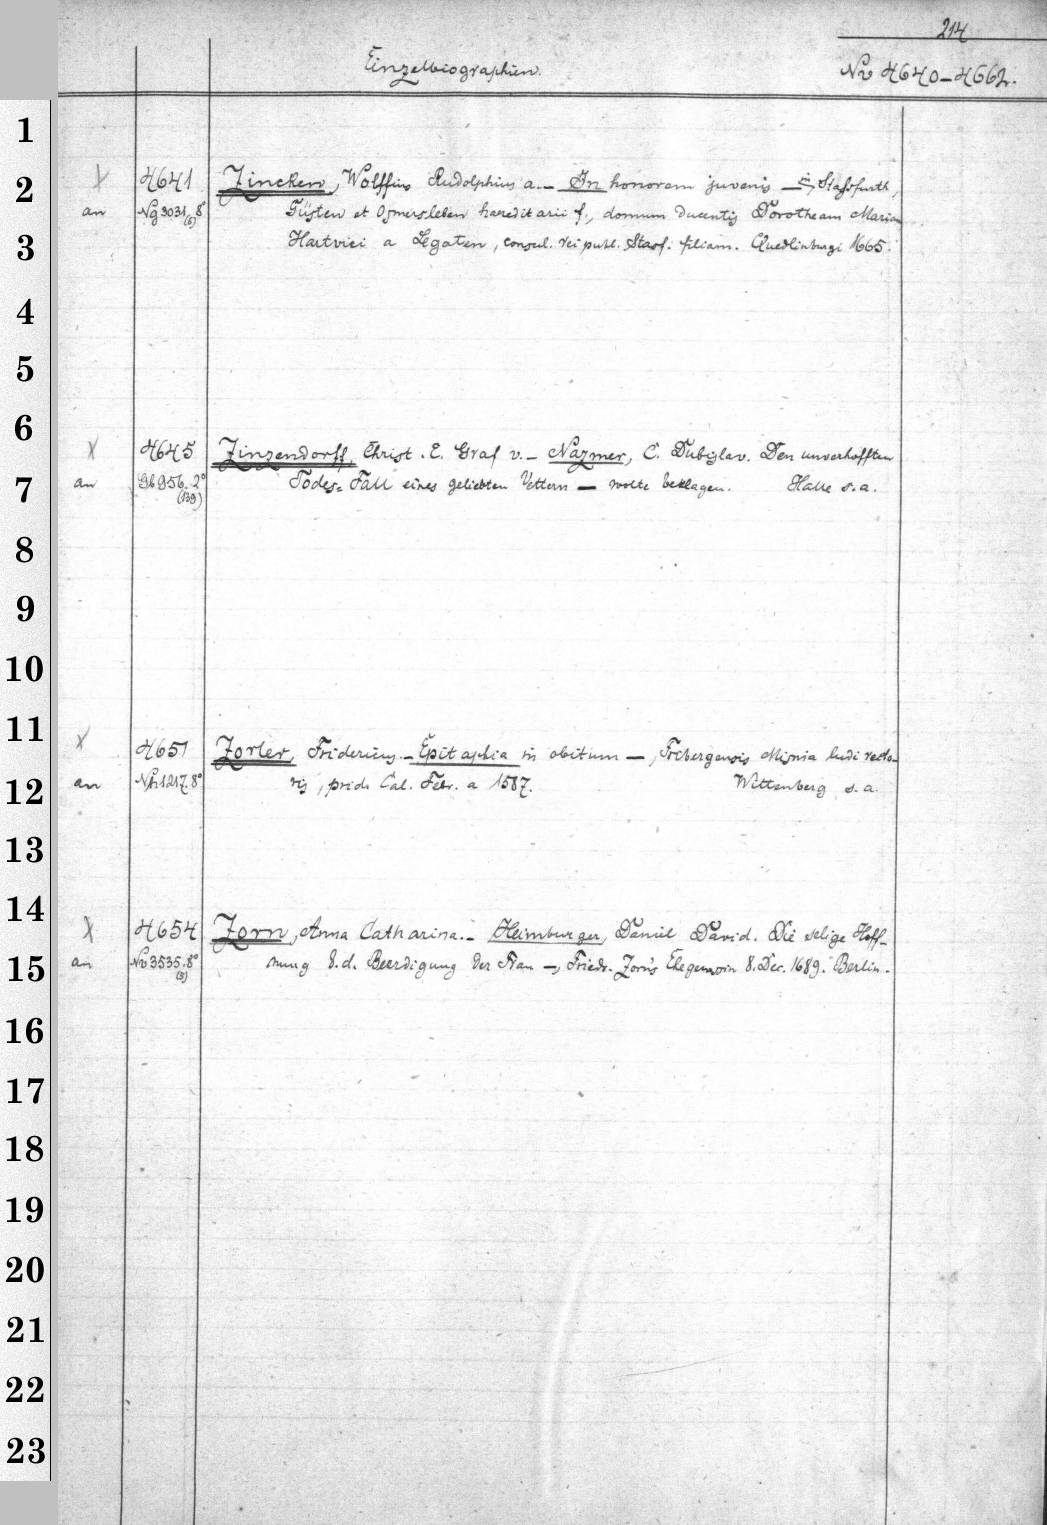 214
Einzelbiographien.
Nv 4640-4662.
1
2
3
4
5
6
7
8
9
10
11
12
13
14
15
16
17
18
19
20
21
22
23
X 4641 Zincken, Wolffius Rudolphius a.- In honorem juvenis — in, Stassfurth,
an Ng 3031, 8° (6) Güsten et Osmersleben hareditarii f., domum ducentis Dorotheam Mariam
Hartvici a Legaten, consul. reipubl. Stasf. filiam. Quedlinburgi 1665.
X 4645 Zinzendorff, Christ. E. Graf v. - Nazmer, C. Dubislav. Den unverhofften
an 956. 2° (139) Todes=Fall eines geliebten Vettern — wolte beklagen. Halle s. a.
X 4651 Zorler, Fridericus. - Epitaphia in obitum —, Fribergensis Misnia ludi recto-
an 1217. 8° ris, prid. Cal. Febr. a 1587. Wittenberg s. a.
X 4654 Zorn, Anna Catharina. - Heimburger, Daniel David. Die selige Hoff-
an Nv 3535, 8° (3) nung b. d. Beerdigung der Frau —, Friedr. Zorn's Ehegenossin 8. Dec. 1689. Berlin.